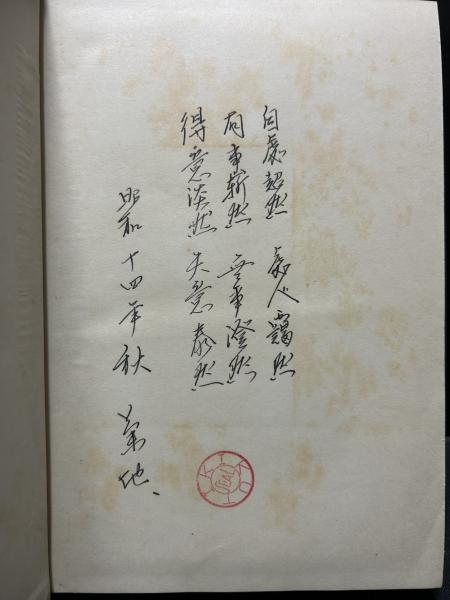 自處超然 處人靄然
有事嶄然 無事澄然
得意淡然 失意泰然
昭和十四年秋